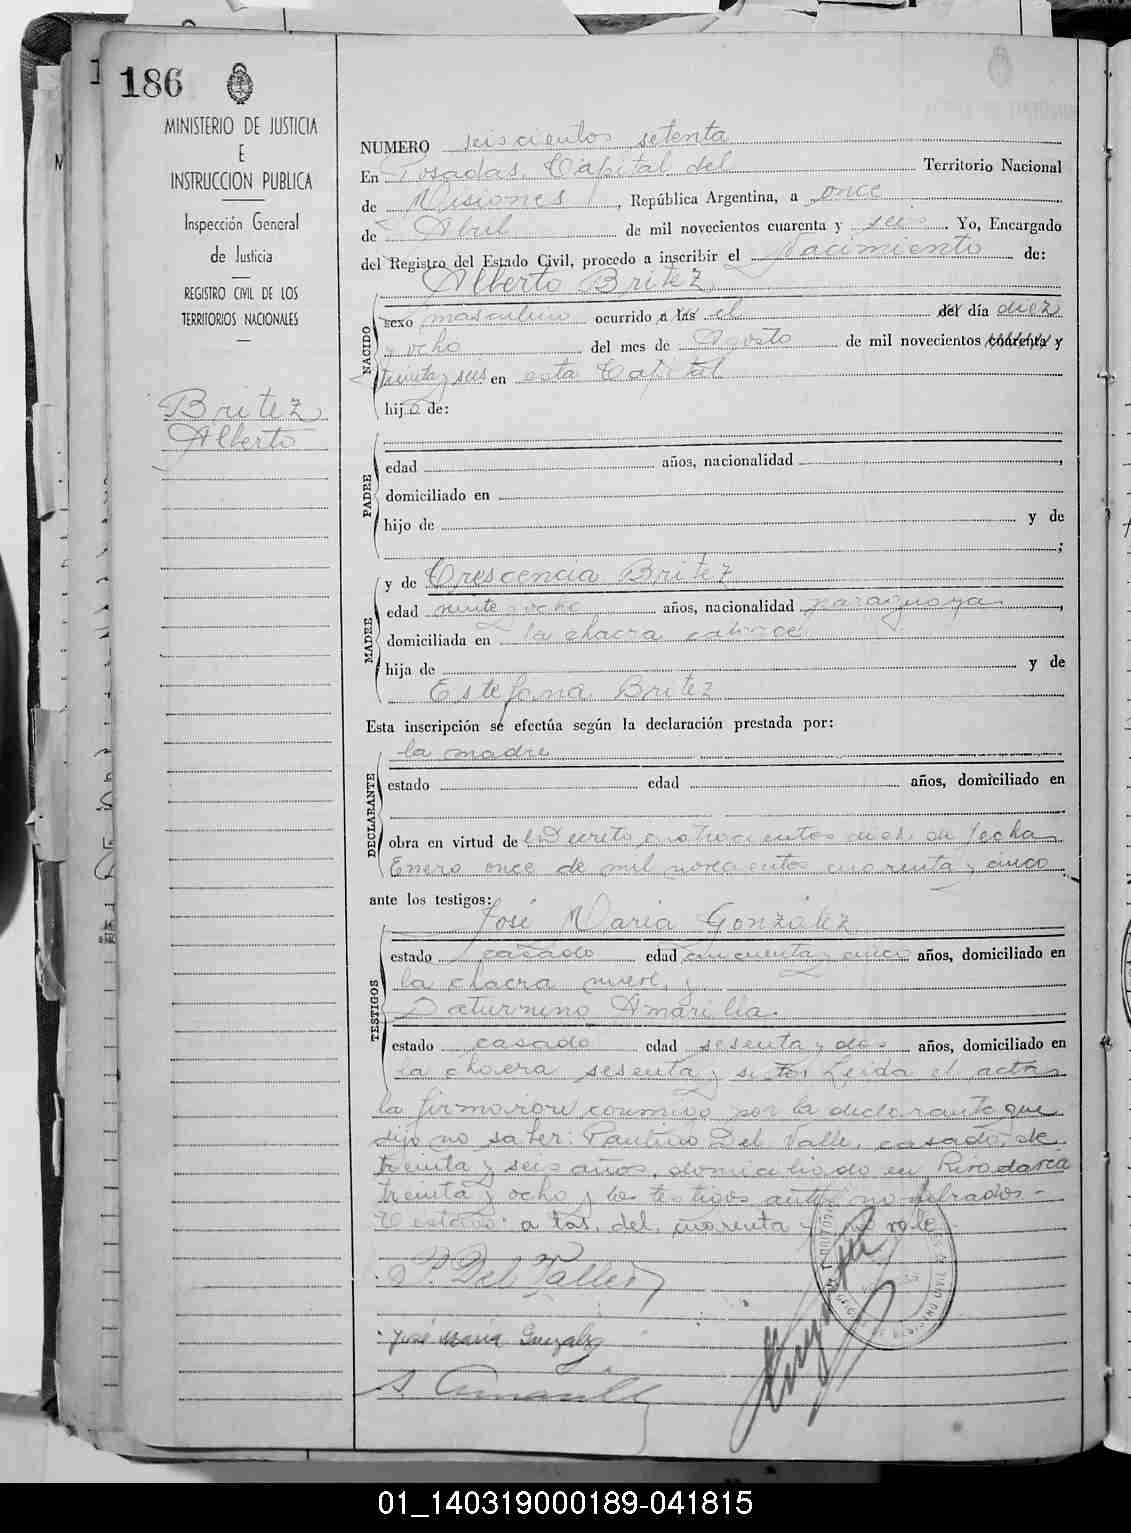 186
MINISTERIO DE JUSTICIA
E
INSTRUCCION PUBLICA
Inspección General
de Justicia
REGISTRO CIVIL DE LOS
TERRITORIOS NACIONALES
Britez
Alberto
NUMERO seiscientos setenta
En Posadas, Capital del Territorio Nacional
de Misiones, República Argentina, a once
de Abril de mil novecientos cuarenta y seis. Yo, Encargado
del Registro del Estado Civil, procedo a inscribir el Nacimiento de:
Alberto Britez
NACIDO
sexo masculino ocurrido a las el del día diez
y ocho del mes de Agosto de mil novecientos cuarenta y
treinta y seis en esta Capital
hijo de:
PADRE
edad años, nacionalidad ,
domiciliado en
hijo de y de
;
MADRE
y de Crescencia Britez
edad veinte y ocho años, nacionalidad paraguaya,
domiciliada en la chacra catorce
hija de y de
Estefana Britez
Esta inscripción se efectúa según la declaración prestada por:
DECLARANTE
la madre
estado edad años, domiciliado en
obra en virtud del Decreto cuatrocientos diez de fecha
Enero once de mil novecientos cuarenta y cinco
ante los testigos:
TESTIGOS
José Maria González
estado casado edad cincuenta y cinco años, domiciliado en
la chacra nueve, y
Saturnino Amarilla.
estado casado edad sesenta y dos años, domiciliado en
la chacra sesenta y siete. Leida el acta
la firmaron conmigo por la declarante que
dijo no saber: Paulino Del Valle, casado, de
treinta y seis años, domiciliado en Rivadavia
treinta y ocho y los testigos antes nombrados-
Testado: a las, del, cuarenta y no vale
P. Del Valle
José María Gonzalez
S. Amarilla
01_140319000189-041815